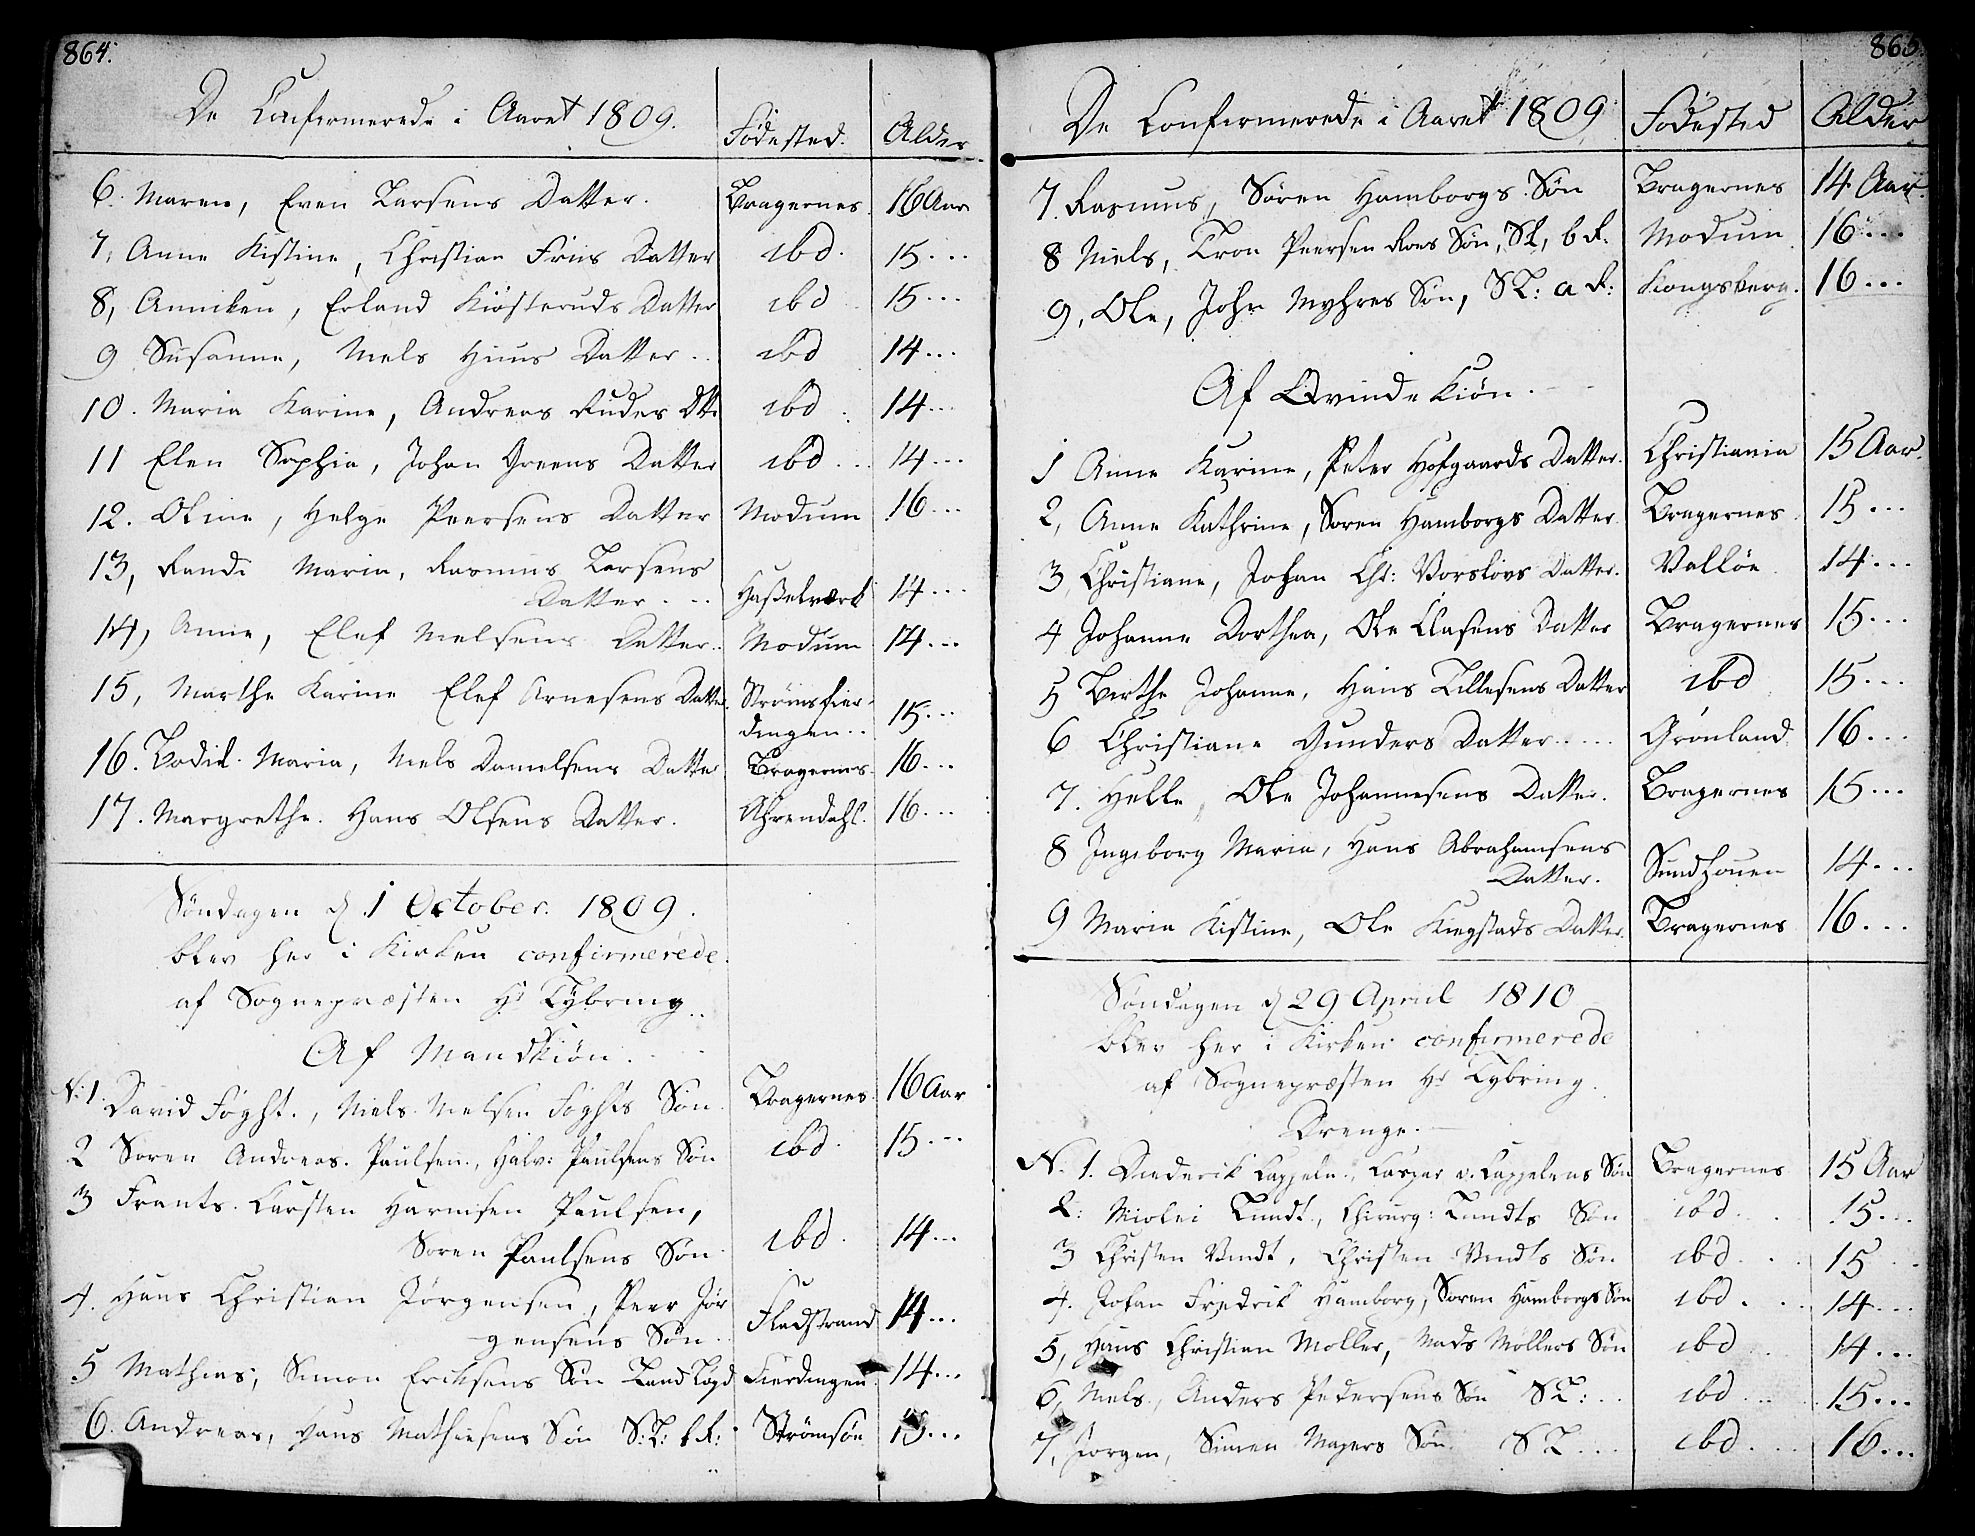 864.
De Confirmerede i Aaret 1809. Fødested. Alder
6. Maren, Even Larsens Datter. Bragernes. 16 Aar
7, Anne Kistine, Christian Friis Datter ibd. 15...
8, Anniken, Erland Kiøsteruds Datter ibd 15...
9 Susanne, Niels Huus Datter.. ibd 14...
10. Maria Karine, Andreas Rudes Dtt. ibd. 14...
11 Elen Sophia, Johan Greens Datter ibd... 14...
12. Oline, Helge Peersens Datter Modum 16...
13, Randi Maria, Rasmus Larsens
Datter... Hasselværk 14...
14, Anne, Elef Nielsens Datter.. Modum 14...
15, Marthe Karine Elef Arnesens Datter. Strømsfier-
dingen.. 15...
16. Bodil Maria, Niels Danielsens Datter Bragernes. 16...
17. Margrethe. Hans Olsens Datter. Ahrendahl. 16...
Søndagen d. 1 October. 1809.
blev her i Kirken confirmerede
af Sognepræsten Hr Tybring..
Af Mandkiøn.
N. 1. David Foght., Niels Nielsen Foghts Søn. Bragernes. 16 Aar
2 Søren Andreas. Paulsen., Halv: Paulsens Søn ibd. 15...
3 Frants. Carsten Harmsen Paulsen,
Soren Paulsens Søn. ibd. 14...
4. Hans Christian Jørgensen, Peer Jør
gensens Søn.. Fladstrand 14...
5 Mathias, Simon Eriksens Søn Fierdingen 14...
6. Andreas, Hans Mathiesens Søn S: L: b R: Strømsøe 15...
865.
De Confirmerede i Aaret 1809 Fødested Alder
7. Rasmus, Søren Hamborgs Søn Bragernes 14 Aar.
8 Niels, Tron Peersen Søn, SL, b R. Modum 16...
9, Ole, John Myhres Søn, S L: a R: Kongsberg. 16...
Af Qvinde Kiøn.
1 Anne Karine, Peter Hofgaards Datter. Christiania 15 Aar.
2, Anne Kathrine, Søren Hamborgs Datter. Bragernes 15...
3, Christiane, Johan Cht: Datter. Valløe 14...
4 Johanne Dorthea, Ole Clasens Datter Bragernes 15...
5 Berthe Johanne, Hans Tillesens Datter ibd 15...
6 Christiane Gunders Datter..... Grønland. 16...
7. Helle, Ole Johannesens Datter. Bragernes 15...
8 Ingeborg Maria, Hans Abrahamsens
Datter. Sundhouen 14...
9 Maria Kistine, Ole Kiegstads Datter. Bragernes 16...
Søndagen d 29 April 1810
blev her i Kirken confirmerede
af Sognepræsten Hr Tybring.
Drenge.
N. 1. Diederik Cappeln., Caspar v. Cappelens Søn Bragernes 15 Aar
2. Tundt., Chirurg: Tundts Søn ibd... 15...
3 Christen Wendt, Christen Wendts Søn ibd... 15...
4. Johan Fredrik Hamborg, Soren Hamborgs Søn ibd... 14...
5, Hans Christian Møller, Mads Møllers Søn ibd... 14...
6, Niels., Anders Pedersens Søn S L:.. ibd.. 15...
7, Jørgen, Simen Søn. S L... ibd... 16...